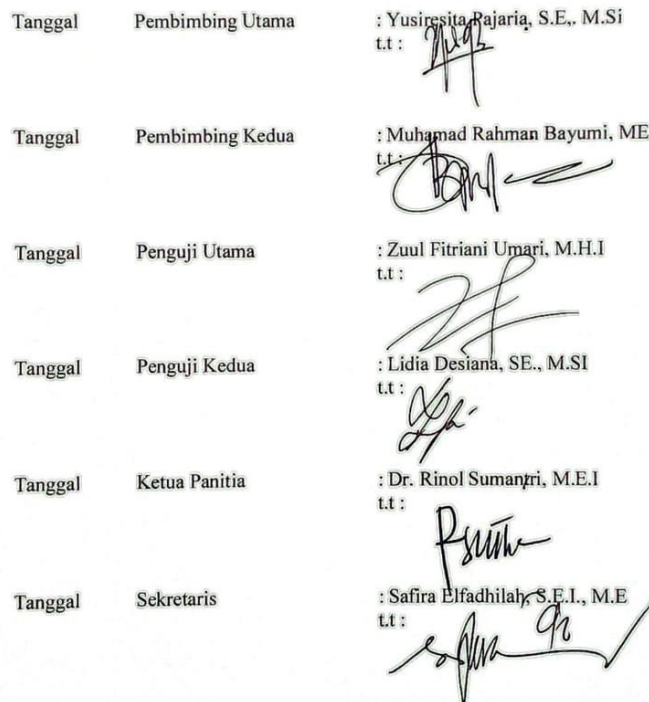 Tanggal Pembimbing Utama : Yusiresita Pajaria, S.E,. M.Si
t.t :
Tanggal Pembimbing Kedua : Muhamad Rahman Bayumi, ME
t.t :
Tanggal Penguji Utama : Zuul Fitriani Umari, M.H.I
t.t :
Tanggal Penguji Kedua : Lidia Desiana, SE., M.SI
t.t :
Tanggal Ketua Panitia : Dr. Rinol Sumantri, M.E.I
t.t :
Tanggal Sekretaris : Safira Elfadhilah, S.E.I., M.E
t.t :